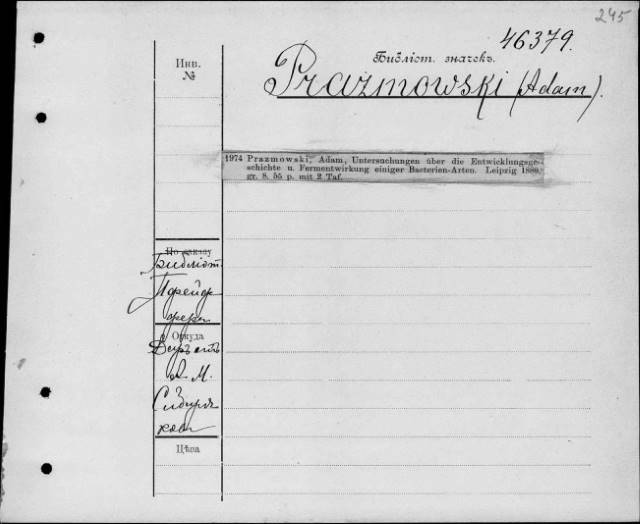 245
46379.
Инв.
№
Библіот. значекъ.
Prazmowski (Adam).
1974 Prazmowski, Adam, Untersuchungen über die Entwicklungsge-
schichte u. Fermentwirkung einiger Bacterien-Arten. Leipzig 1880.
gr. 8. 55 p. mit 2 Taf.
По заказу
Библіот.
Пфейф
фера
Откуда
Даръ отъ
А. М.
Сибиря
кова
Цѣна